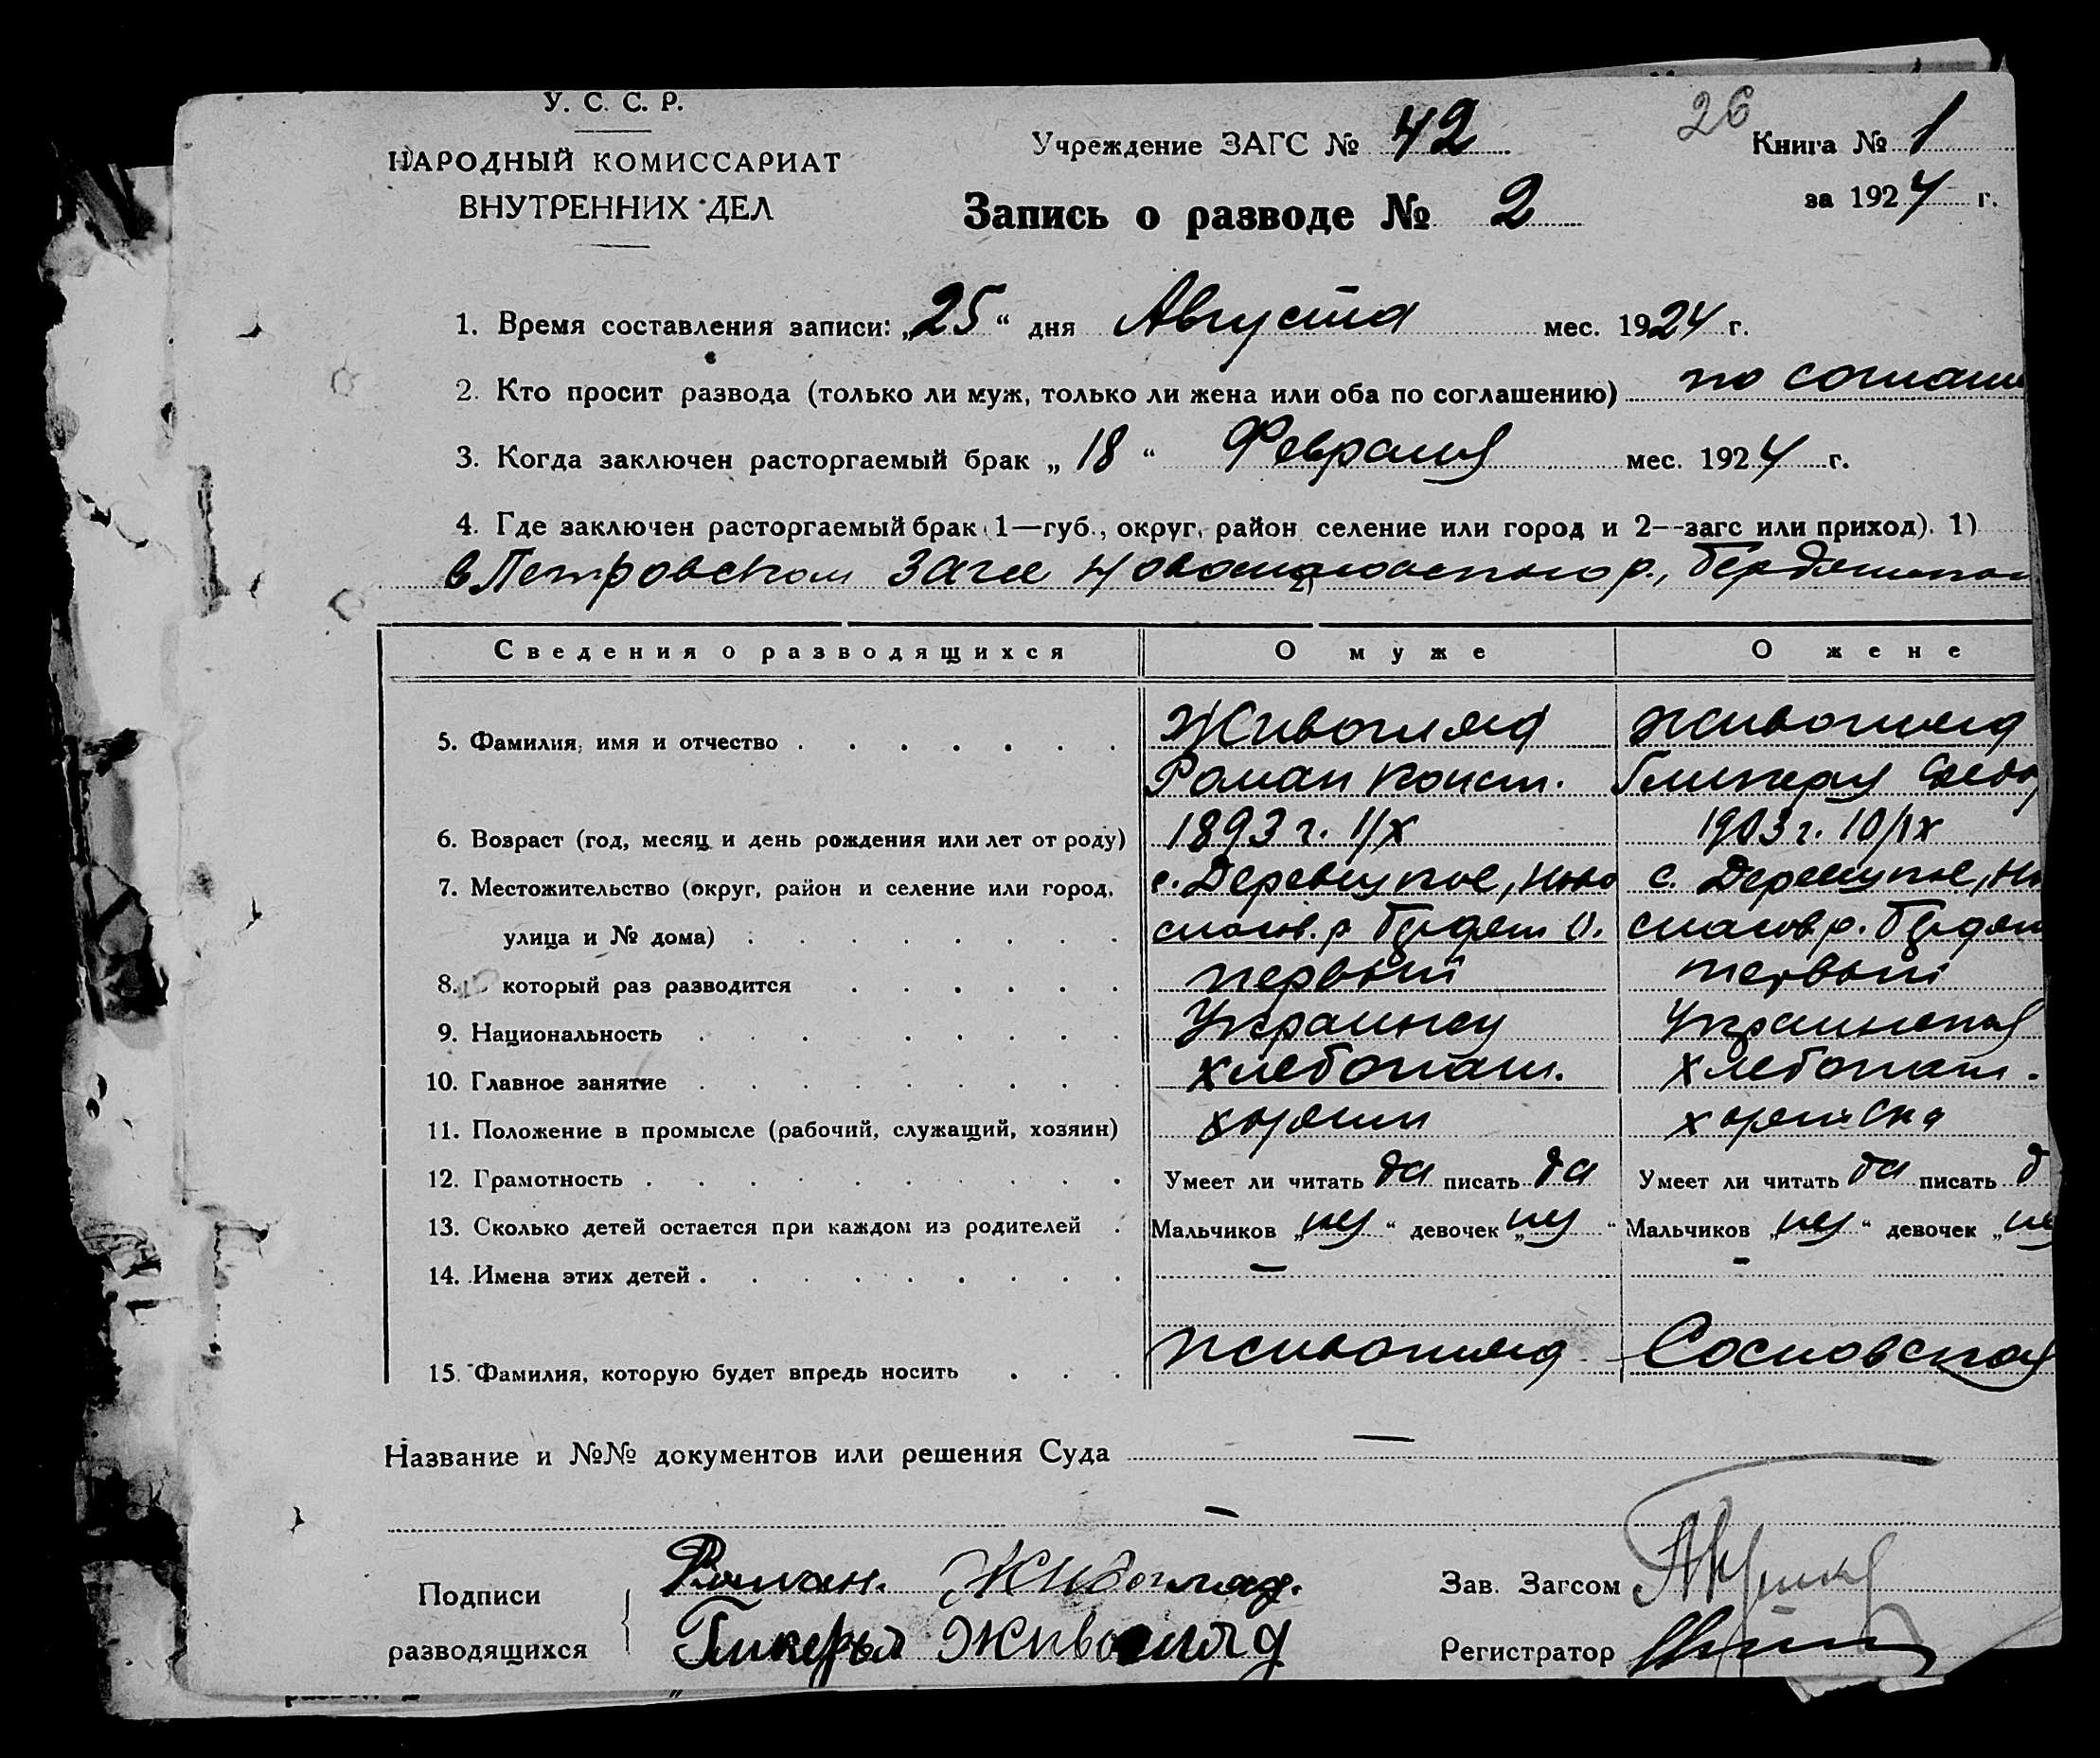 У. С. С. Р.
НАРОДНЫЙ КОМИССАРИАТ
ВНУТРЕННИХ ДЕЛ
Учреждение ЗАГС № 42
26
Книга № 1
за 1924 г.
Запись о разводе № 2
1. Время составления записи: „25“ дня Августа мес. 1924 г.
2. Кто просит развода (только ли муж, только ли жена или оба по соглашению) по соглаши
3. Когда заключен расторгаемый брак „18“ Февраля мес. 1924 г.
4. Где заключен расторгаемый брак (1—губ., округ, район селение или город и 2—загс или приход). 1)
в Петровском Загсе р., 2)
Сведения о разводящихся О муже О жене
5. Фамилия, имя и отчество Живогляд Живогляд
Роман Конст. Гликерия
6. Возраст (год, месяц и день рождения или лет от роду) 1893 г. 1/X 1903 г. 10/IX
7. Местожительство (округ, район и селение или город, с. , Ново с. , Но
улица и № дома) спасов. р. О. спасов р.
8. который раз разводится первый первый
9. Национальность Украинец Украинская
10. Главное занятие хлебопаш. хлебопаш.
11. Положение в промысле (рабочий, служащий, хозяин) хозяин хозяйка
12. Грамотность Умеет ли читать да писать да Умеет ли читать да писать д
13. Сколько детей остается при каждом из родителей Мальчиков „нет“ девочек „нет“ Мальчиков „нет“ девочек „не
14. Имена этих детей — —
15. Фамилия, которую будет впредь носить Живогляд Сосновская
Название и №№ документов или решения Суда —
—
Подписи
разводящихся
Роман. Живогляд.
Гликерья Живогляд
Зав. Загсом
Регистратор